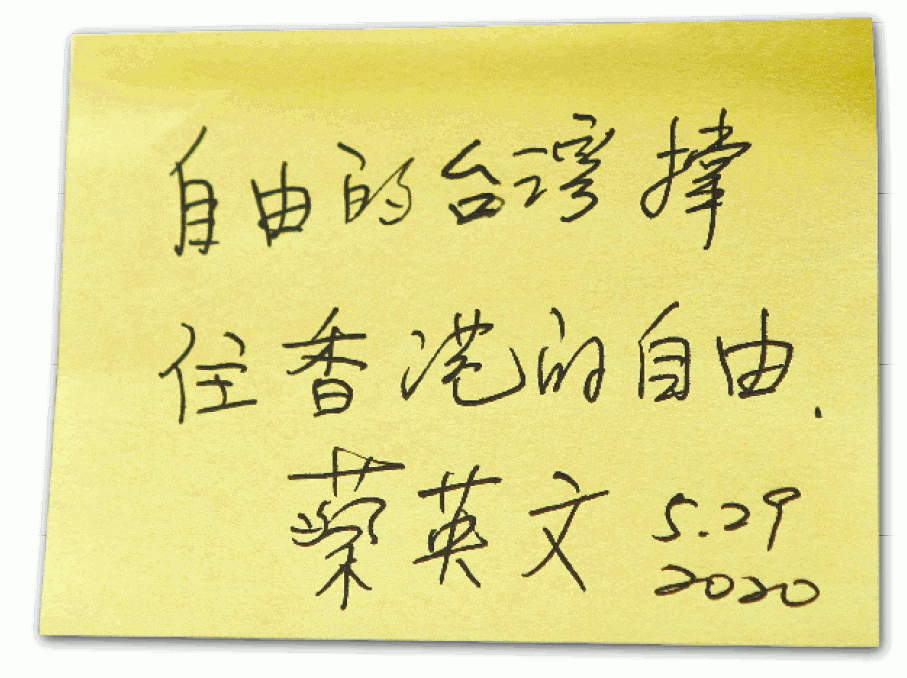 自由的台湾撑
住香港的自由.
蔡英文 5.29
2020